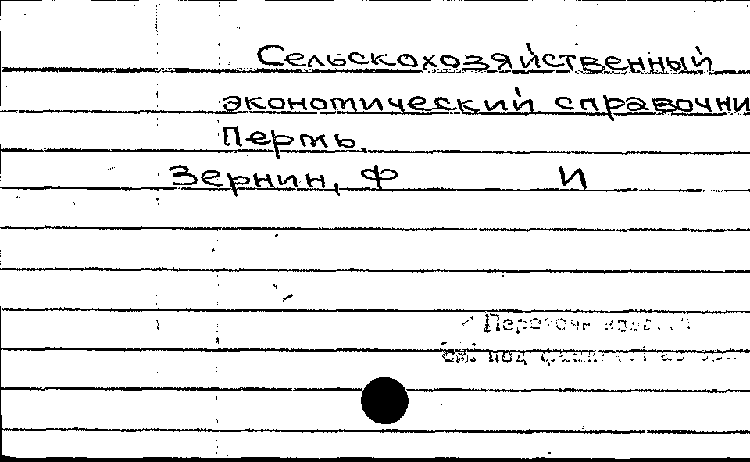 Сельскохозяйственный
экономический справочни
Пермь.
Зернин, Ф И
см. под